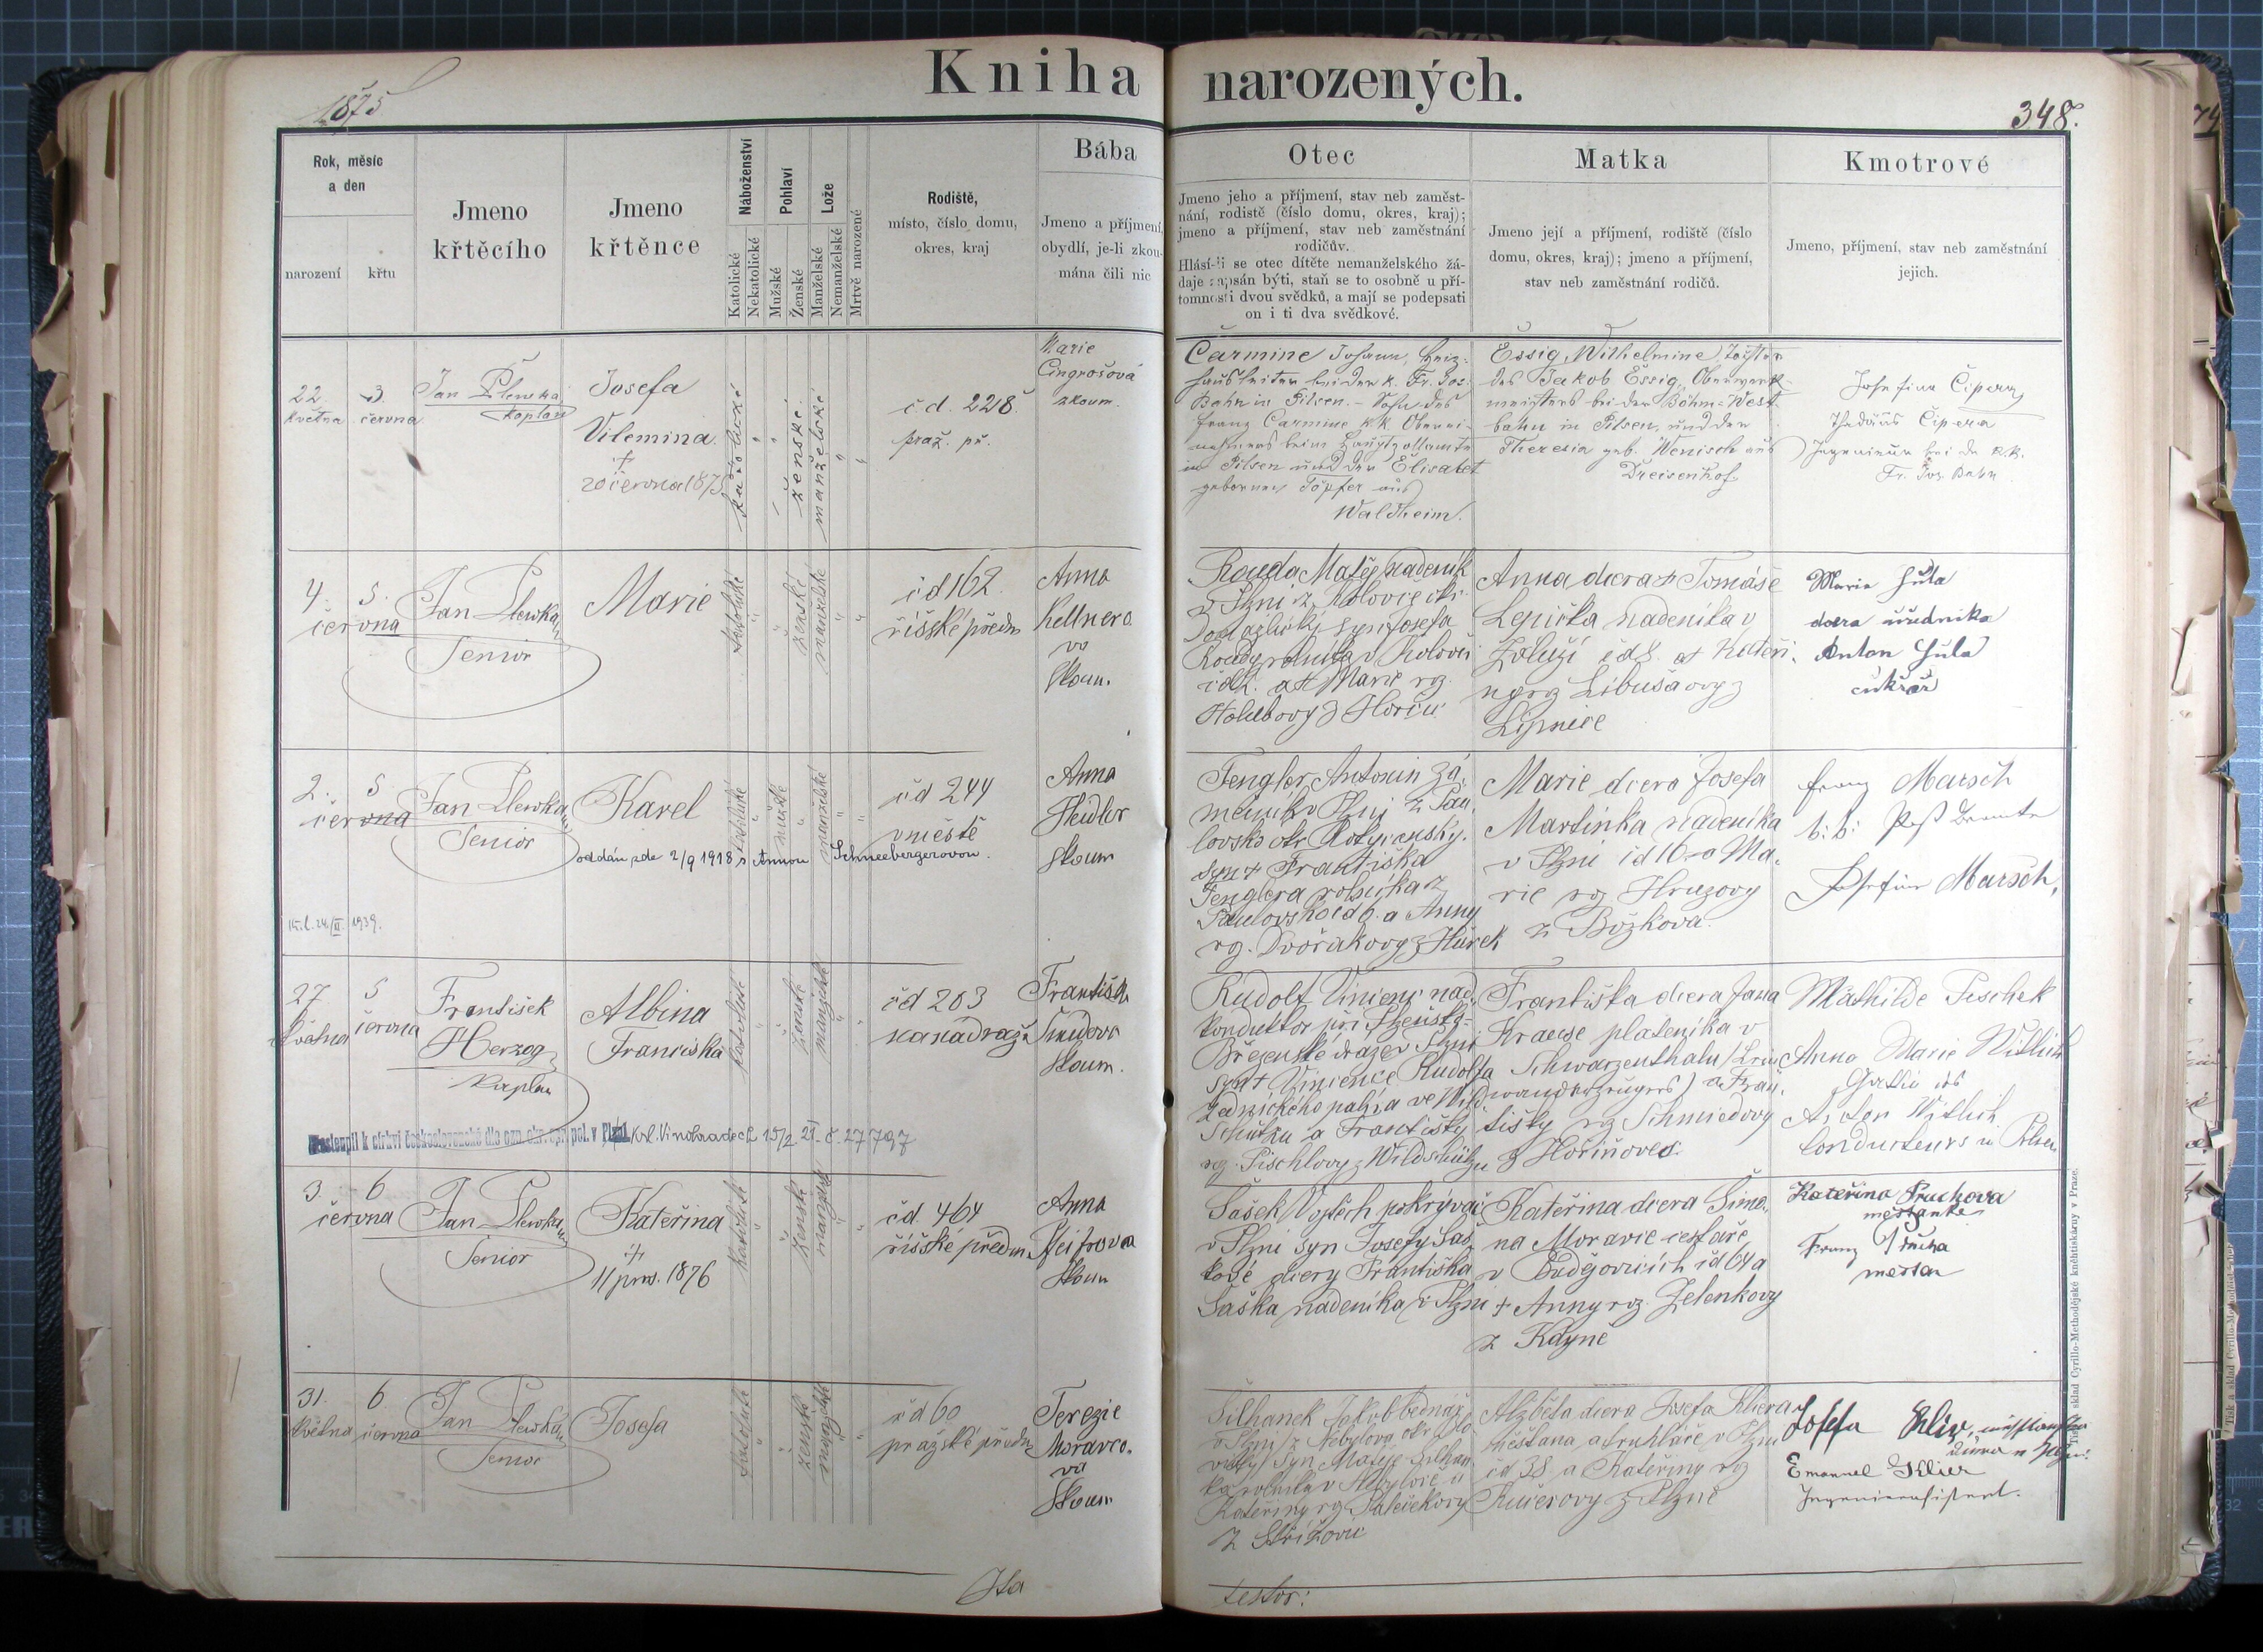 Kniha narozených.
1875
348.
Rok, měsíc
a den
narození
křtu
Jmeno
křtěcího
Jmeno
křtěnce
Náboženství
Katolické
Nekatolické
Pohlaví
Mužské
Ženské
Lože
Manželské
Nemanželské
Mrtvě narozené
Rodiště,
místo, číslo domu,
okres, kraj
Bába
Jmeno a příjmení,
obydlí, je-li zkou-
mána čili nic
Otec
Jmeno jeho a příjmení, stav neb zaměst-
nání, rodistě (číslo domu, okres, kraj);
jmeno a příjmení, stav neb zaměstnání
rodičův.
Hlásí-li se otec dítěte nemanželského žá-
daje zapsán býti, staň se to osobně u pří-
tomnosti dvou svědků, a mají se podepsati
on i ti dva svědkové.
Matka
Jmeno její a příjmení, rodiště (číslo
domu, okres, kraj); jmeno a příjmení,
stav neb zaměstnání rodičů.
Kmotrové
Jmeno, příjmení, stav neb zaměstnání
jejich.
22. května
3. června
Jan Plewka
kaplan
Josefa
Vilemina
†
20 června 1875
katolické
ženské
manželské
čd. 228.
praž. př.
Marie
Cingrošová
zkoum.
Čarmine Johann, Heiz-
hausleiter bei der k. Fr. Jos.
Bahn in Pilsen. - Sohn des
Franz Carmine k.k. Oberei-
nehmers beim Hauptzollamte
in Pilsen und der Elisabet
gebornen Töpfer aus
Waldheim.
Essig Wilhelmine, Tochter
des Jakob Essig, Oberwerk-
meisters bei der Böhm. West-
bahn in Pilsen, und der
Theresia geb. Wenisch aus
Dreisenhof
Josefine Čipera
Thadäus Čipera
Ingenieur bei der k.k.
Fr. Jos. Bahn
4. 5.
června
Jan Plewka
Senior
Marie
katolické
ženské
manželské
čd 162
říšské předm
Anna
Kellnero
vá
skoum.
Rouda Matěj nadeník
v Plzni z Kolovče okr.
Domažlický syn Josefa
Roudy rolníka v Kolovči
a † Marie rz.
Holubovy z Hořiv
Anna dcera † Tomáše
Lepička nadeníka v
Záluží čd 8. a † Kateři-
ny rz Libušovy z
Lipnice
Marie Šůla
dcera úředníka
Anton Šůla
cukrář
2. 5
června
Jan Plewka
Senior
Karel
katolické
mužské
manželské
oddán zde 2/9 1918 s Annou Schneebergerovou.
24/II 1939.
čd 244
v městě
Anna
Heidler
skoum
Fengler Antonín zá-
mečník v Plzni z Pav-
lovsko okr. Rokycanský.
syn † Františka
Fenglera rolníka z
Pavlovsko čd 6. a Anny
rz. Dvořákovy z Hůrek
Marie dcera Josefa
Martinka nadeníka
v Plzni čd 16 a Ma-
rie rz Hruzovy
z Božkova.
Franz Marsch
k: k: Post Beamte
Josefine Marsch,
27. května
5 června
František
Herzog
Kaplan
Albina
Františka
katolické
ženské
manželské
čd 203
na nádraží
Františka
skoum.
Přestoupil k církvi československé dle ozn. okr. spr. pol. v Plzni Kr. Vinohradech 15/2 21. č. 27797
Rudolf Vincenc nad-
konduktor při Plzeňsko-
Březenské dráze v Plzni
syn † Vincence Rudolfa
zednického palíra ve Wild-
schützu a Františky
rz. Pischlovy z Wildschützu
Františka dcera Jana
Krause platenika v
Schwarzenthalu (Lein-
wanderzeugers) a Fran-
tišky rz Schmiedovy
z Hořiňoves
Mathilde Pischek
Anna Marie Wittich
Gattin des
Anton Wittich
Conducteurs in Pilsen
3. 6
června
Jan Plewka
Senior
Kateřina
†
11 pros. 1876
katolické
ženské
manželské
čd. 464
říšské předm
Anna
skoum
Šašek Vojtěch pokrývač
v Plzni syn Josefy Šaš-
kové dcery Františka
Šaška nadeníka v Plzni
Kateřina dcera Šimo-
na Moravce cestáře
v Budějovicích čd 64 a
† Anny rz. Zelenkovy
z Kdyně
Kateřina Pruchova
měšťanka
Franz Průcha
měšťan
31. května
6. června
Jan Plewka
Senior
Josefa
katolické
ženské
manželské
čd 60
pražské předm
Terezie
Moravco-
vá
skoum
Šilhanek Jakob bednář
v Plzni z Nebylova okr. Plo-
vický syn Matěje Šilhan-
ka rolníka v Nebylově a
Kateřiny rz. Palečkovy
z Střížovic
Alžběta dcera Josefa Kliera
měšťana a truhláře v Plzni
čd 38 a Kateřiny rz
Kučerovy z Plzně
Josefa Klier, měšťanská
dcera v Plzni:
Emanuel Klier
Ingenieurassistent.
Tisk a sklad Cyrillo-Methodějské knihtiskárny v Praze.